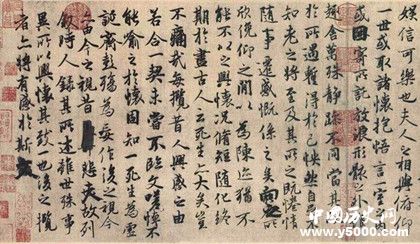 娛信可樂也夫人之相與俯仰
一世或取諸懷抱悟言一室之內
或因寄所託放浪形骸之外雖
趣舍萬殊靜躁不同當其欣
於所遇暫得於己怏然自足不
知老之將至及其所之既惓情
隨事遷感慨係之矣向之所
欣俛仰之間以為陳迹猶不
能不以之興懷況脩短隨化終
期於盡古人云死生亦大矣豈
不痛哉每攬昔人興感之由
若合一契未嘗不臨文嗟悼不
能喻之於懷固知一死生為虛
誕齊彭殤為妄作後之視今
亦由今之視昔悲夫故列
敘時人錄其所述雖世殊事
異所以興懷其致一也後之攬
者亦將有感於斯文
中国历史网
www.y5000.com